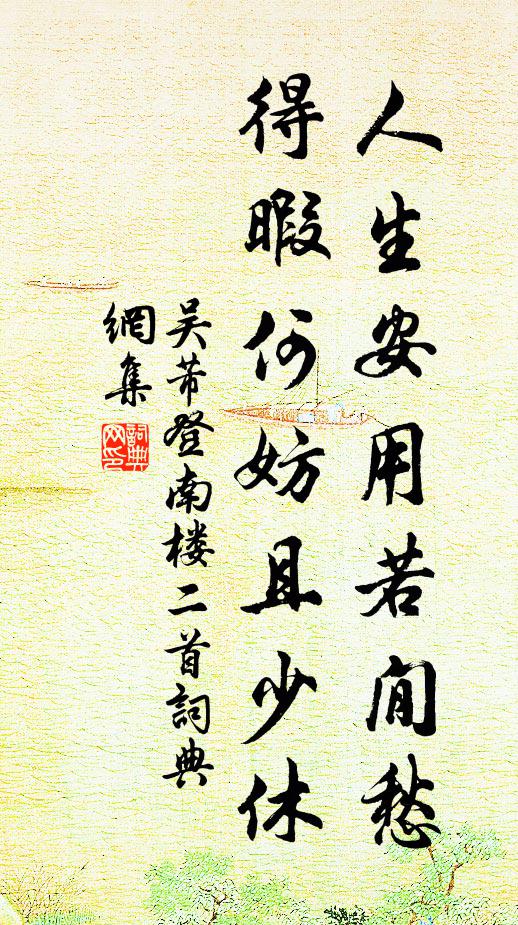 人生安用若閒愁
得暇何妨且少休
吴芾登南楼二首詞典
網集
詞典
网印